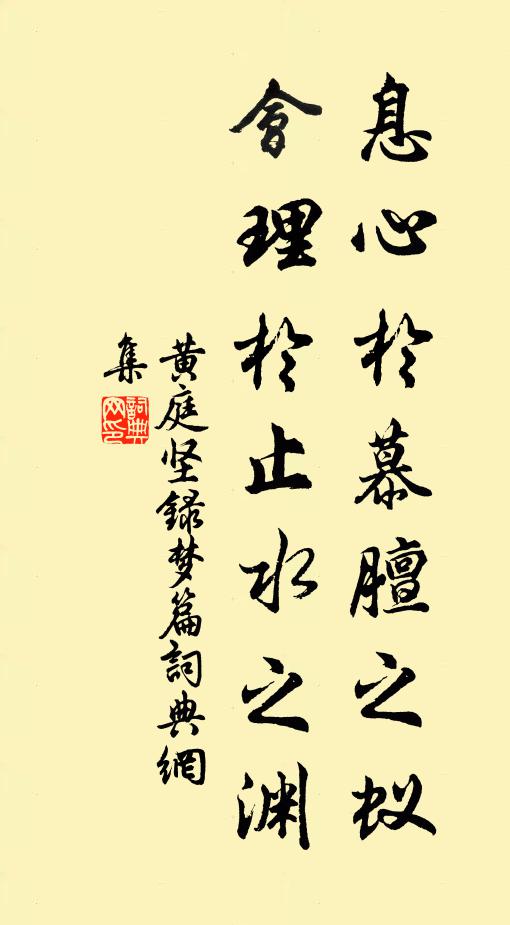 息心於慕膻之蚁
會理於止水之渊
黄庭坚録梦篇詞典網
集
詞典网印